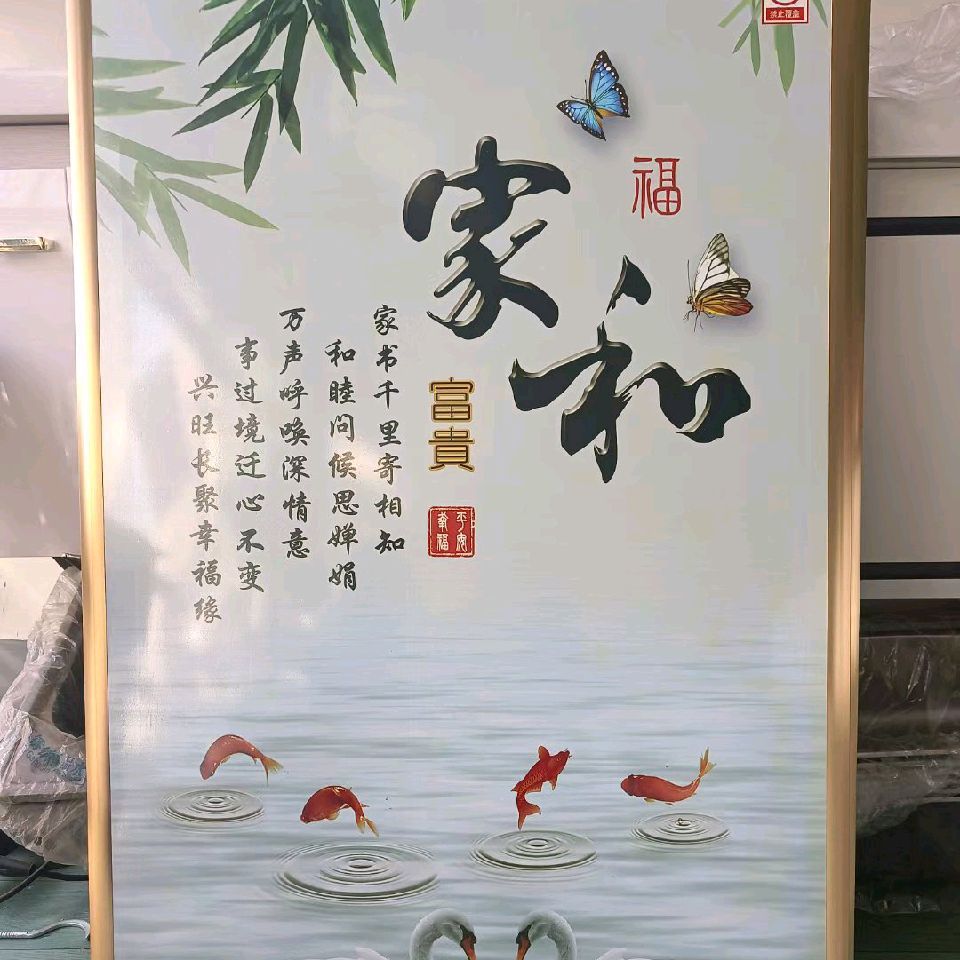 家和
福
富貴
平安
幸福
家书千里寄相知
和睦问候思婵娟
万声呼唤深情意
事过境迁心不变
兴旺长聚幸福缘